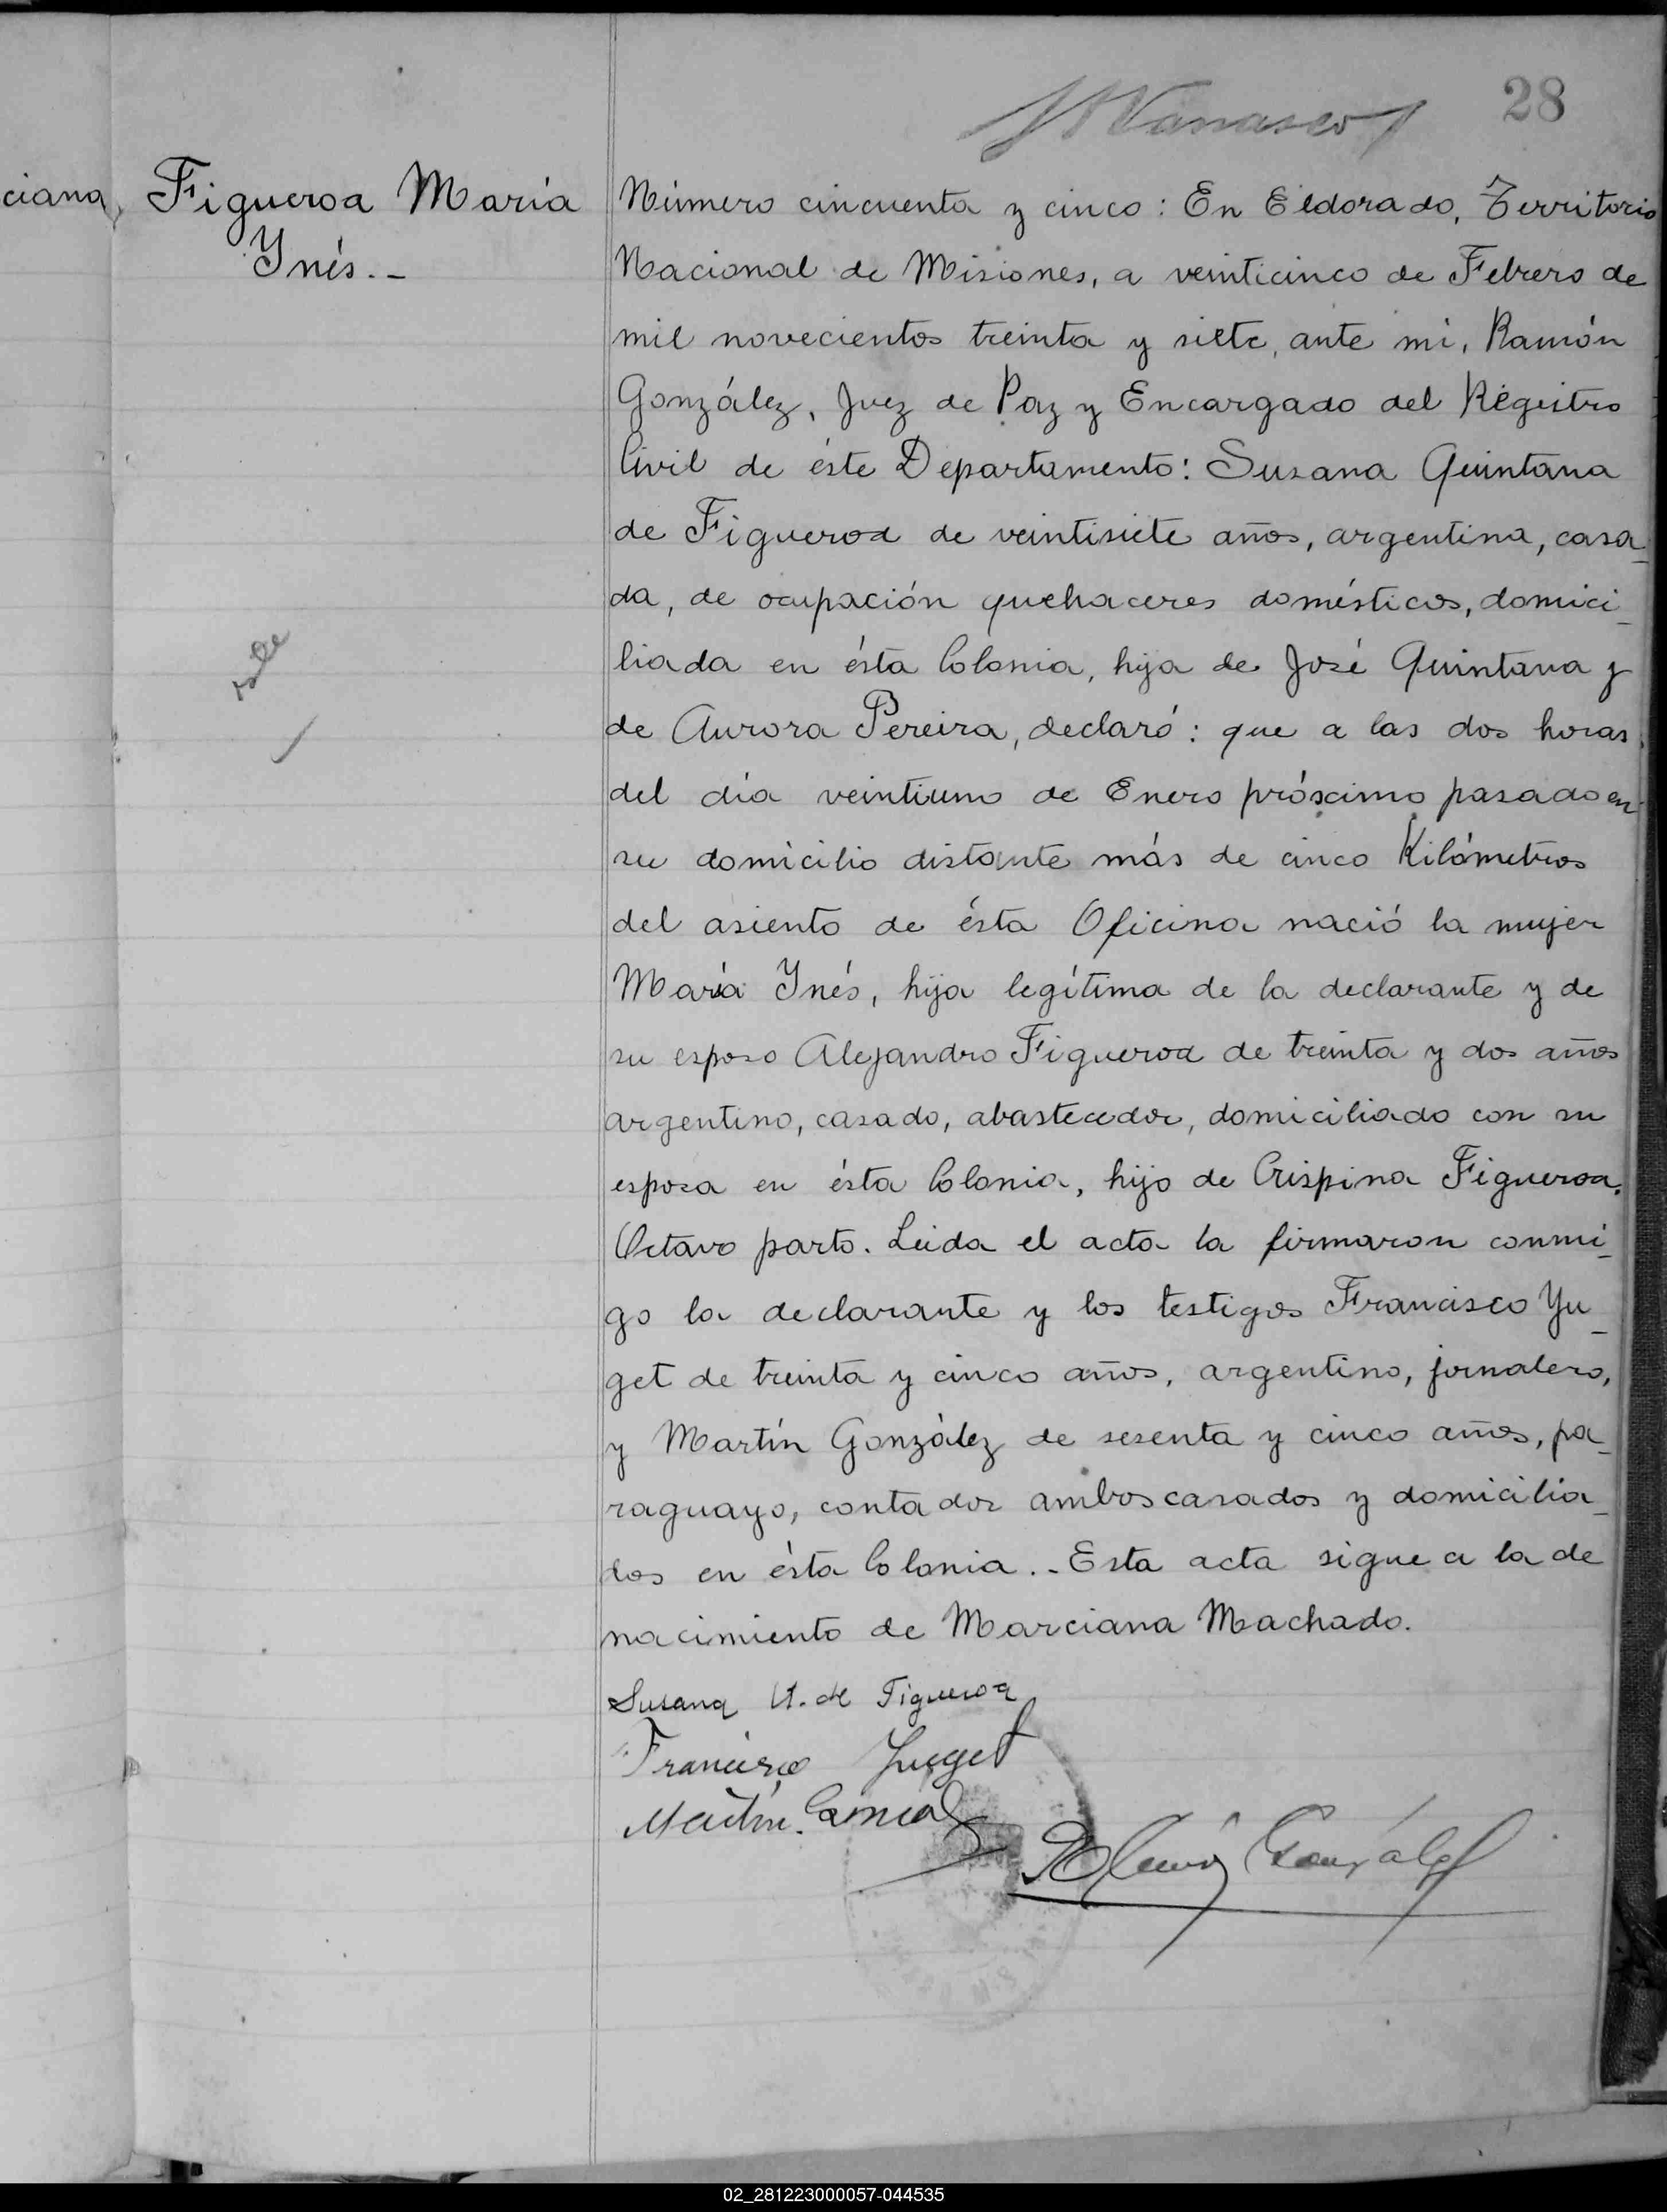 28
ciana,
Figueroa María
Ynés.-
Número cincuenta y cinco: En Eldorado, Territorio
Nacional de Misiones, a veinticinco de Febrero de
mil novecientos treinta y siete, ante mí, Ramón
González, Juez de Paz y Encargado del Régistro
Civil de éste Departamento: Susana Quintana
de Figueroa de veintisiete años, argentina, casa_
da, de ocupación quehaceres domésticos, domici_
liada en ésta Colonia, hija de José Quintana y
de Aurora Pereira, declaró: que a las dos horas
del día veintiuno de Enero próximo pasado en
su domicilio distante más de cinco Kilómetros
del asiento de ésta Oficina nació la mujer
María Ynés, hija legítima de la declarante y de
su esposo Alejandro Figueroa de treinta y dos años
argentino, casado, abastecedor, domiciliado con su
esposa en ésta Colonia, hijo de Crispina Figueroa.
Octavo parto. Leida el acta la firmaron conmi_
go la declarante y los testigos Francisco Yu_
get de treinta y cinco años, argentino, jornalero,
y Martín González de sesenta y cinco años, pa_
raguayo, contador ambos casados y domicilia_
dos en ésta Colonia.- Esta acta sigue a la de
nacimiento de Marciana Machado.
Susana de Figueroa
Francisco Juget
Martin
González
02_281223000057-044535